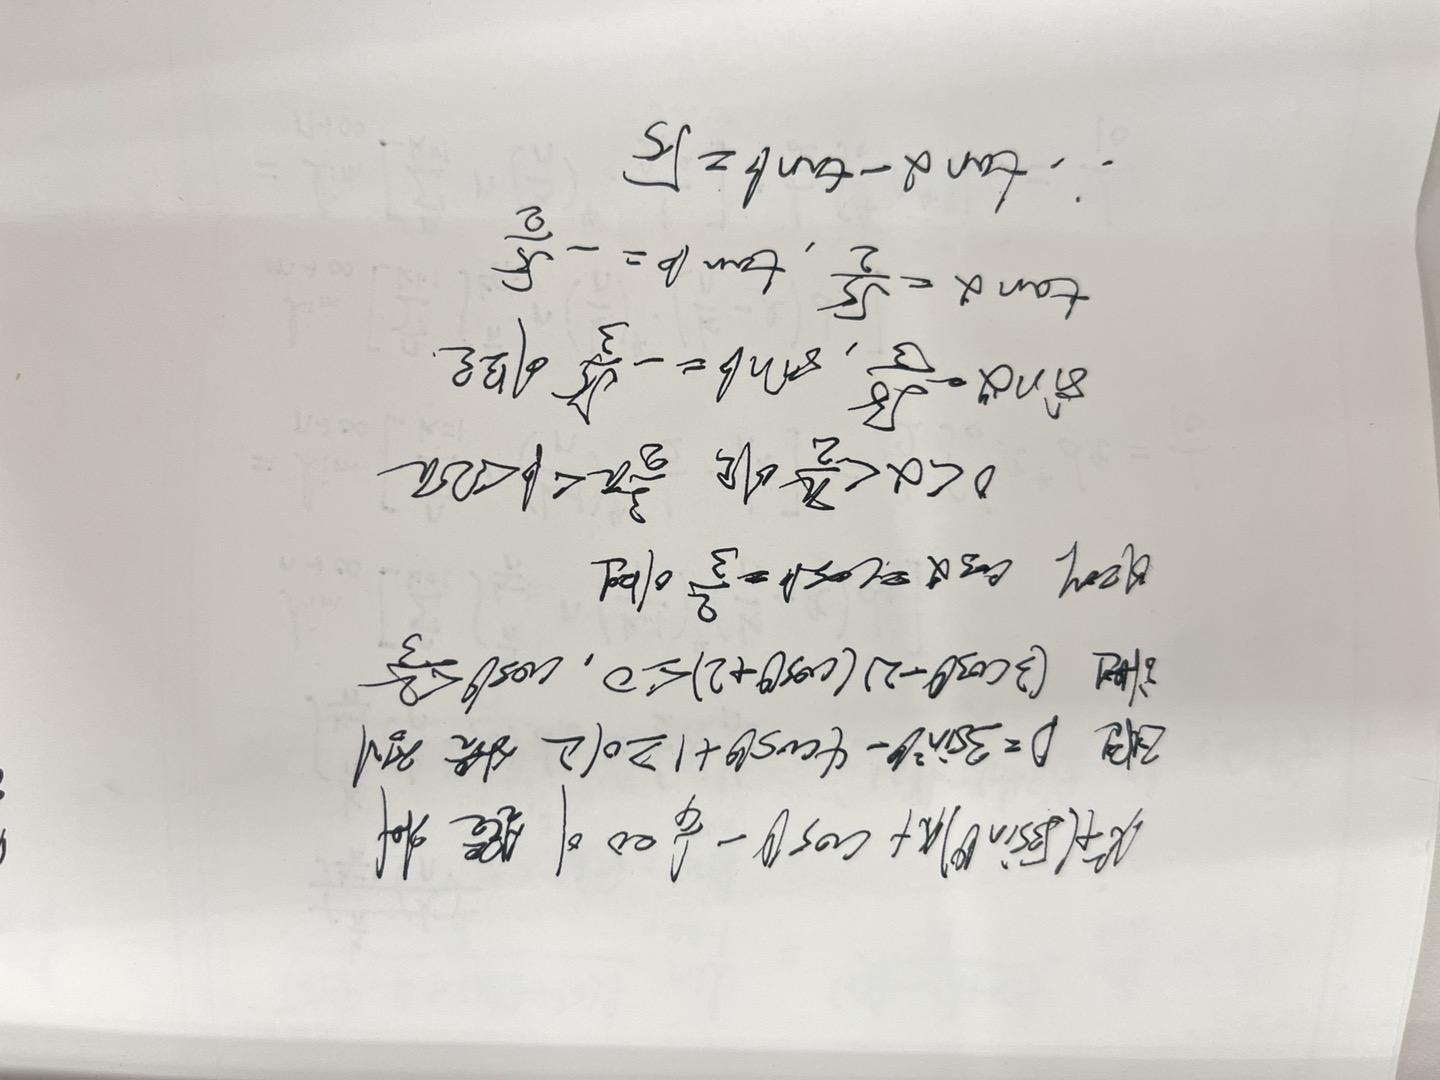 x²+(√3sinθ)x + cosθ - 1/4 = 0 이 실근을 가져
D = 3sin²θ - 4cosθ+1 ≥ 0 이고 식을 정리
하면 (3cosθ-2)(cosθ+2) ≤ 0, cosθ ≤ 2/3
따라서 cosα = cosβ = 2/3 이며
0<α<π/2 이고 3/2π < β < 2π
sinα = √5/3, sinβ = -√5/3 이므로
tanα = √5/2, tanβ = -√5/2
∴ tanα - tanβ = √5